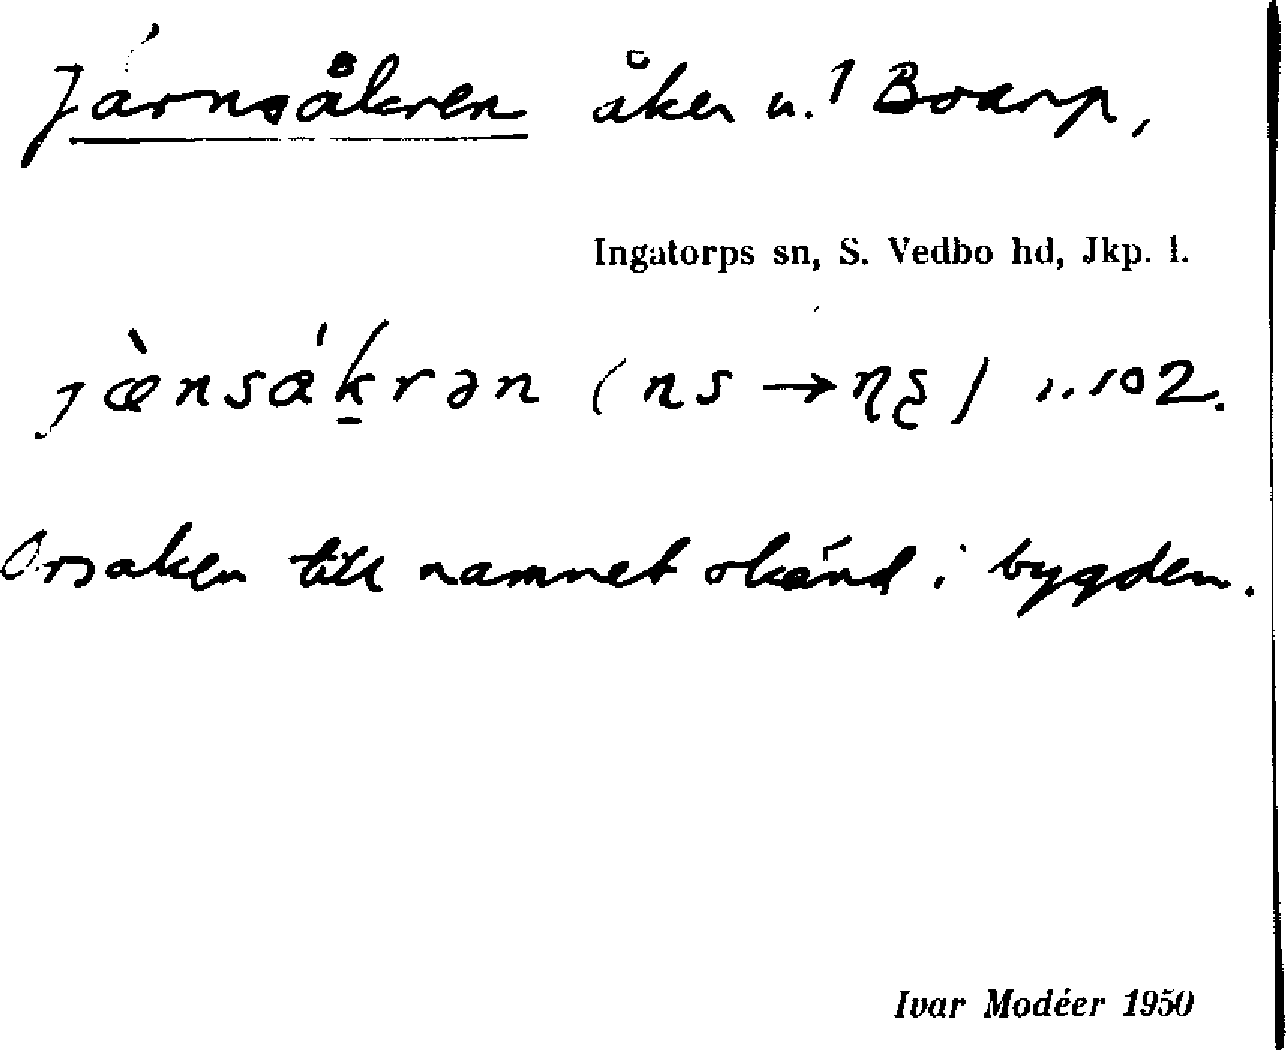 Järnsåkren åker u. 1 Boarp,
Ingatorps sn, S. Vedbo hd, Jkp. l.
jæ̀nsákrən (ns → ɳʂ) 102.
Orsaken till namnet okänd i bygden.
Ivar Modéer 1950